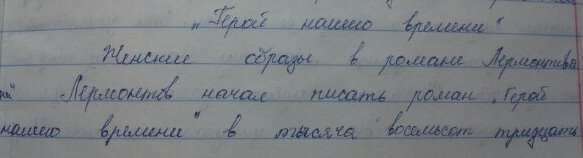 „Герой нашего времени"
Женские образы в романе Лермонтова
Лермонтов начал писать роман „Герой
нашего времени" в тысяча восемьсот тридцать